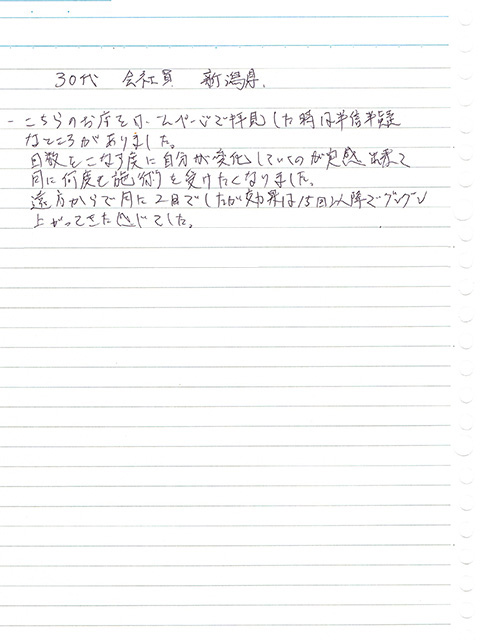 30代 会社員 新潟県.
- こちらのお店をホームページで拝見した時は半信半疑
なところがありました。
回数をこなす度に自分が変化していくのが実感出来て
月に何度も施術を受けたくなりました。
遠方からで月に2回でしたが効果は15回以降でグングン
上がってきた感じでした。